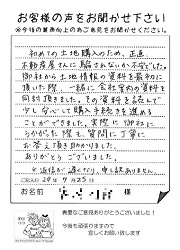 お客様の声をお聞かせ下さい
※今後の業務向上の為ご意見をお聞かせください。
初めての土地購入のため、正直、
不動産屋さんに騙されないか不安でした。
御社から土地情報の資料を最初に
頂いた際、一緒に会社案内の資料を
同封頂きました。その資料を読んで
少し安心して購入手続きを進める
ことができました。実際に御社に
うかがった際も、質問に丁寧に
お答え頂き助かりました。
ありがとうございました。
※返信が遅くなり、申し訳ありません。
ご記入日 24年7月25日
お名前 様
貴重なご意見ありがとうございました!
今後も頑張りますので
宜しくお願い致します